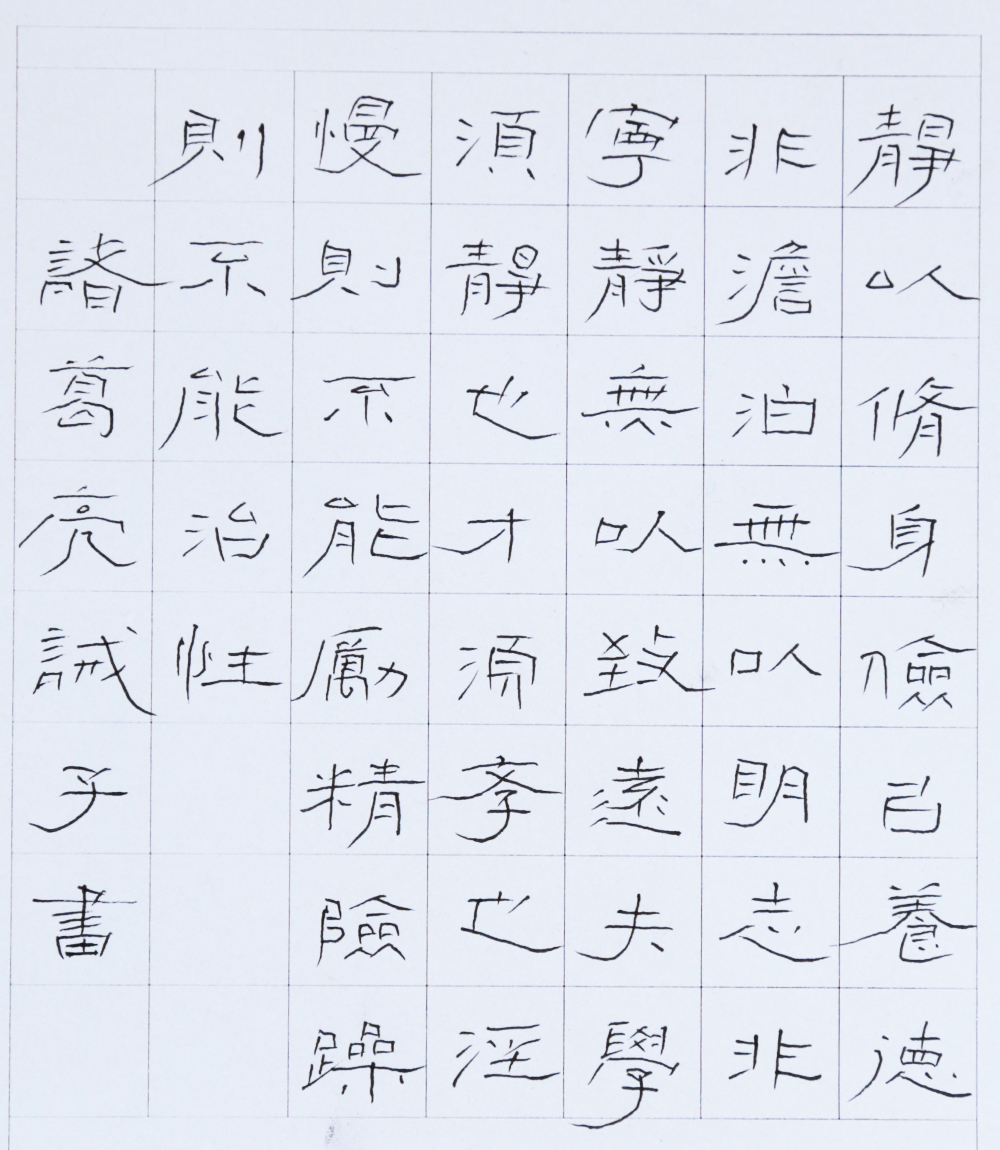 靜以脩身儉己養德
非澹泊無以明志非
寧靜無以致遠夫學
須靜也才須斈也淫
慢則不能勵精險躁
則不能治性
諸葛亮誡子書